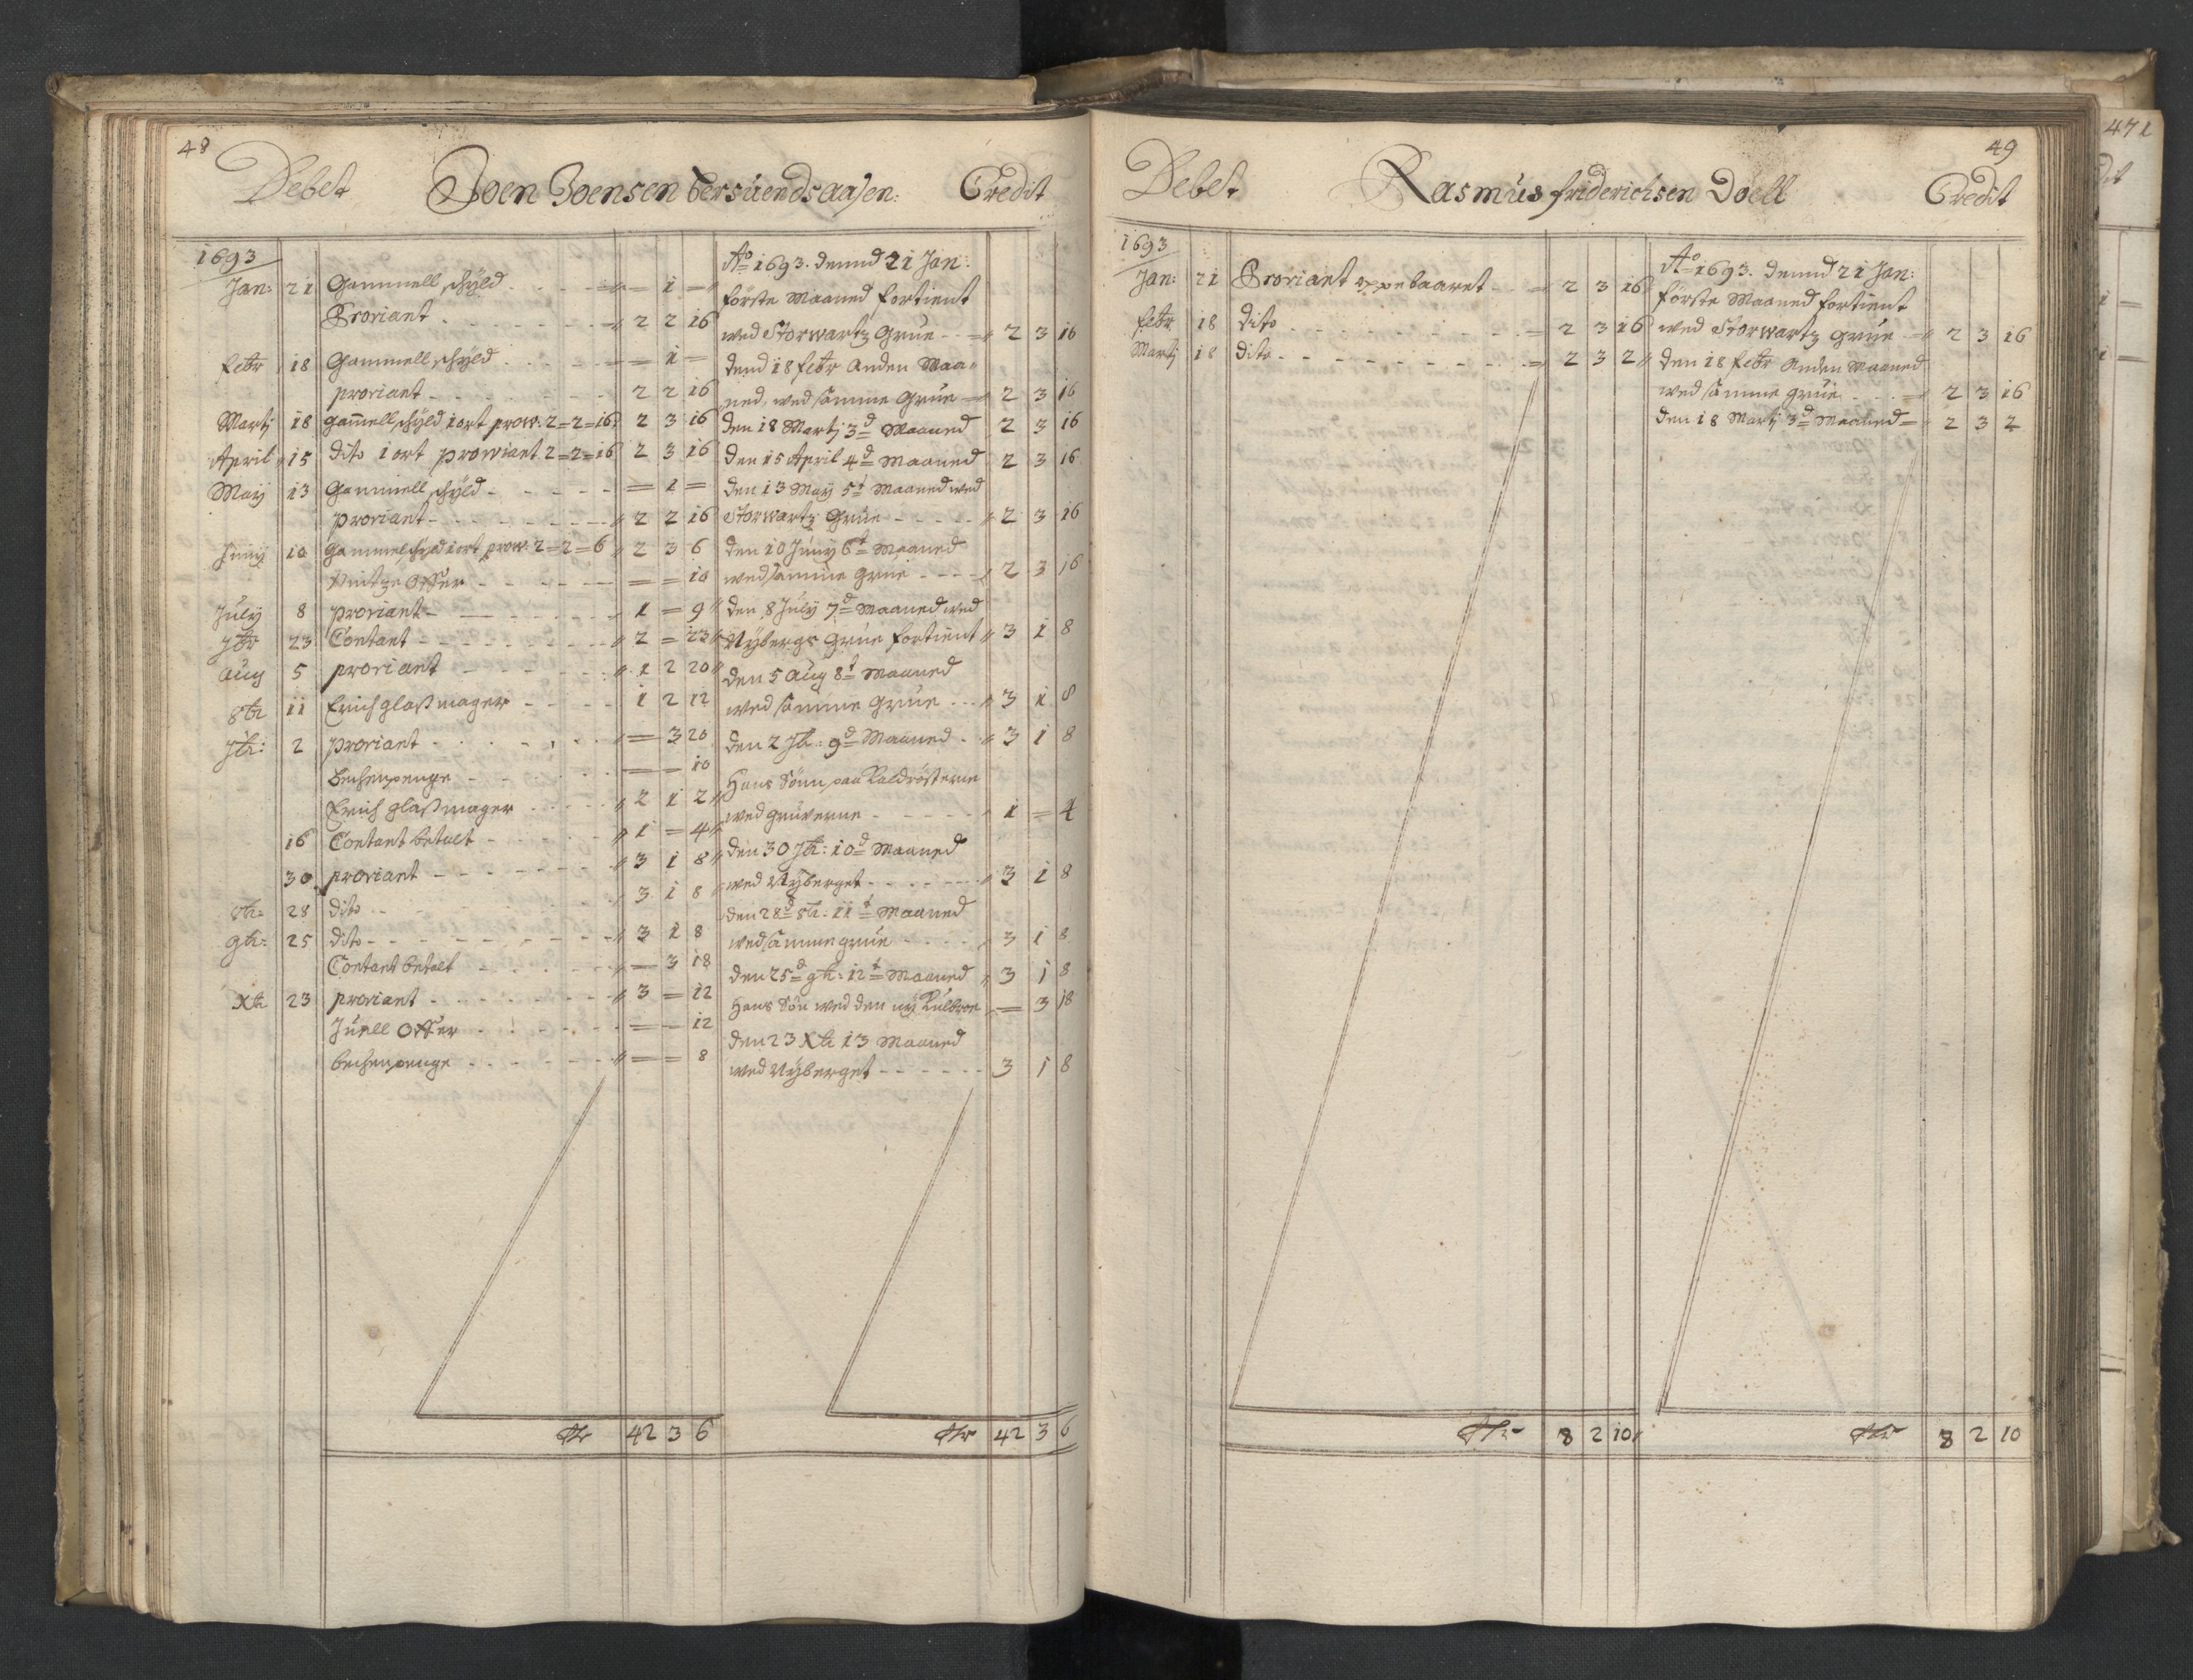 48
Debet Joen Joensen Bersuendsaasen: Credit
1693
Jan: 21 Gammell schyld = 1 =
Proviant 2 2 16
Febr 18 Gammell schyld = 1 =
proviant 2 2 16
Martj 18 gamell schyld 1 ort prow: 2=2=16 2 3 16
April 15 dito 1 ort prowiant 2=2=16 2 3 16
Maij 13 Gammell schyld = 1 =
proviant 2 2 16
Junij 10 Gammelschyld 1 ort prow: 2=2=6 2 3 6
Pintze Offer = = 10
Julij 8 proviant 1 = 9
7br 23 Contant 2 = 23
Aug 5 proviant 1 2 20
8br 11 Erich glassmager 1 2 12
7br: 2 proviant = 3 20
Bechenpenge = = 10
Erich glassmager 2 1 2
16 Contant betalt 1 = 4
30 proviant 3 1 8
8br: 28 dito 3 1 8
9br: 25 dito 3 1 8
Contant betalt = 3 18
Xbr 23 proviant 3 = 12
Juell Offer = = 12
bechenpenge = = 8
42 3 6
Ao 1693. dennd 21 Jan:
förste Maaned fortient
wed Storwartz Grue 2 3 16
dend 18 Febr Anden Maa=
ned, wed samme Grue 2 3 16
den 18 Martj 3d Maaned 2 3 16
den 15 April 4d Maaned 2 3 16
den 13 Maij 5t Maaned wed
Storwartz Grue 2 3 16
den 10 Junij 6t Maaned
wed samme Grue 2 3 16
den 8 Julij 7d Maaned wed
Nybergs Grue fortient 3 1 8
den 5 Aug 8t Maaned
wed samme Grue 3 1 8
den 2 7br: 9d Maaned 3 1 8
Hans Sönn paa Kaldrösterne
wed gruverne 1 = 4
den 30 7br: 10d Maaned
wed Nyberget 3 1 8
den 28d 8br: 11t Maaned
wed samme grue 3 1 8
den 25d 9br: 12t Maaned 3 1 8
Hans Sön wed den ny Kulbroe = 3 18
den 23 Xbr 13 Maaned
wed Nyberget 3 1 8
42 3 6
49
Debet Rasmus friderichsen Döell Credit
1693
Jan: 21 Proviant oppebaaret 2 3 16
Febr 18 dito 2 3 16
Martj 18 dito 2 3 2
8 2 10
Ao 1693. dennd 21 Jan:
förste Maaned fortient
wed Storwartz grue 2 3 16
den 18 Febr Anden Maaned
wed samme grue 2 3 16
den 18 Martj 3d Maaned 2 3 2
8 2 10
471